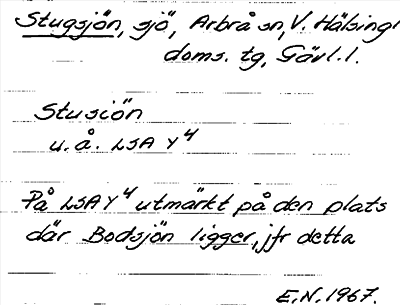 Stugsjön, sjö, Arbrå sn, V. Hälsingl
doms. tg, Gävl. l.
Stusiön
u. å. LSA Y4
På LSA Y4 utmärkt på den plats
där Bodsjön ligger, jfr detta
E.N. 1967.